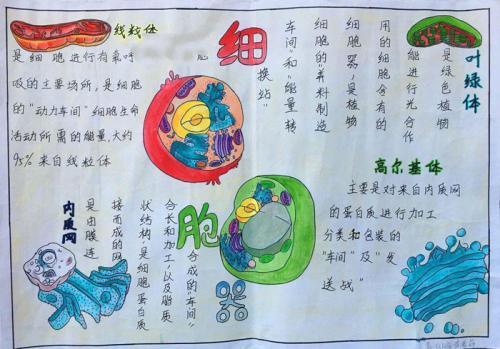 线粒体
是细胞进行有氧呼
吸的主要场所,是细胞
的"动力车间"细胞生命
活动所需的能量,大约
95%来自线粒体
细
胞
叶绿体
是绿色植物
能进行光合作
用的细胞含有的
细胞器,是植物
细胞的"养料制造
车间"和"能量转
换站"
高尔基体
主要是对来自内质网
的蛋白质进行加工
分类和包装的
"车间"及"发
送站"
内质网
是由膜连
接而成的网
状结构,是细胞蛋白质
合成和加工,以及脂质
合成的"车间"